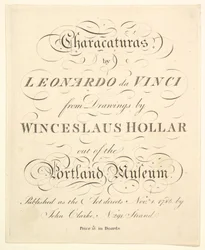 Characaturas
by
LEONARDO da VINCI
from Drawings by
WINCESLAUS HOLLAR
out of the
Portland Museum
Published as the Act directs Novr. 1. 1786 by
John Clarke, Strand
Price in Boards